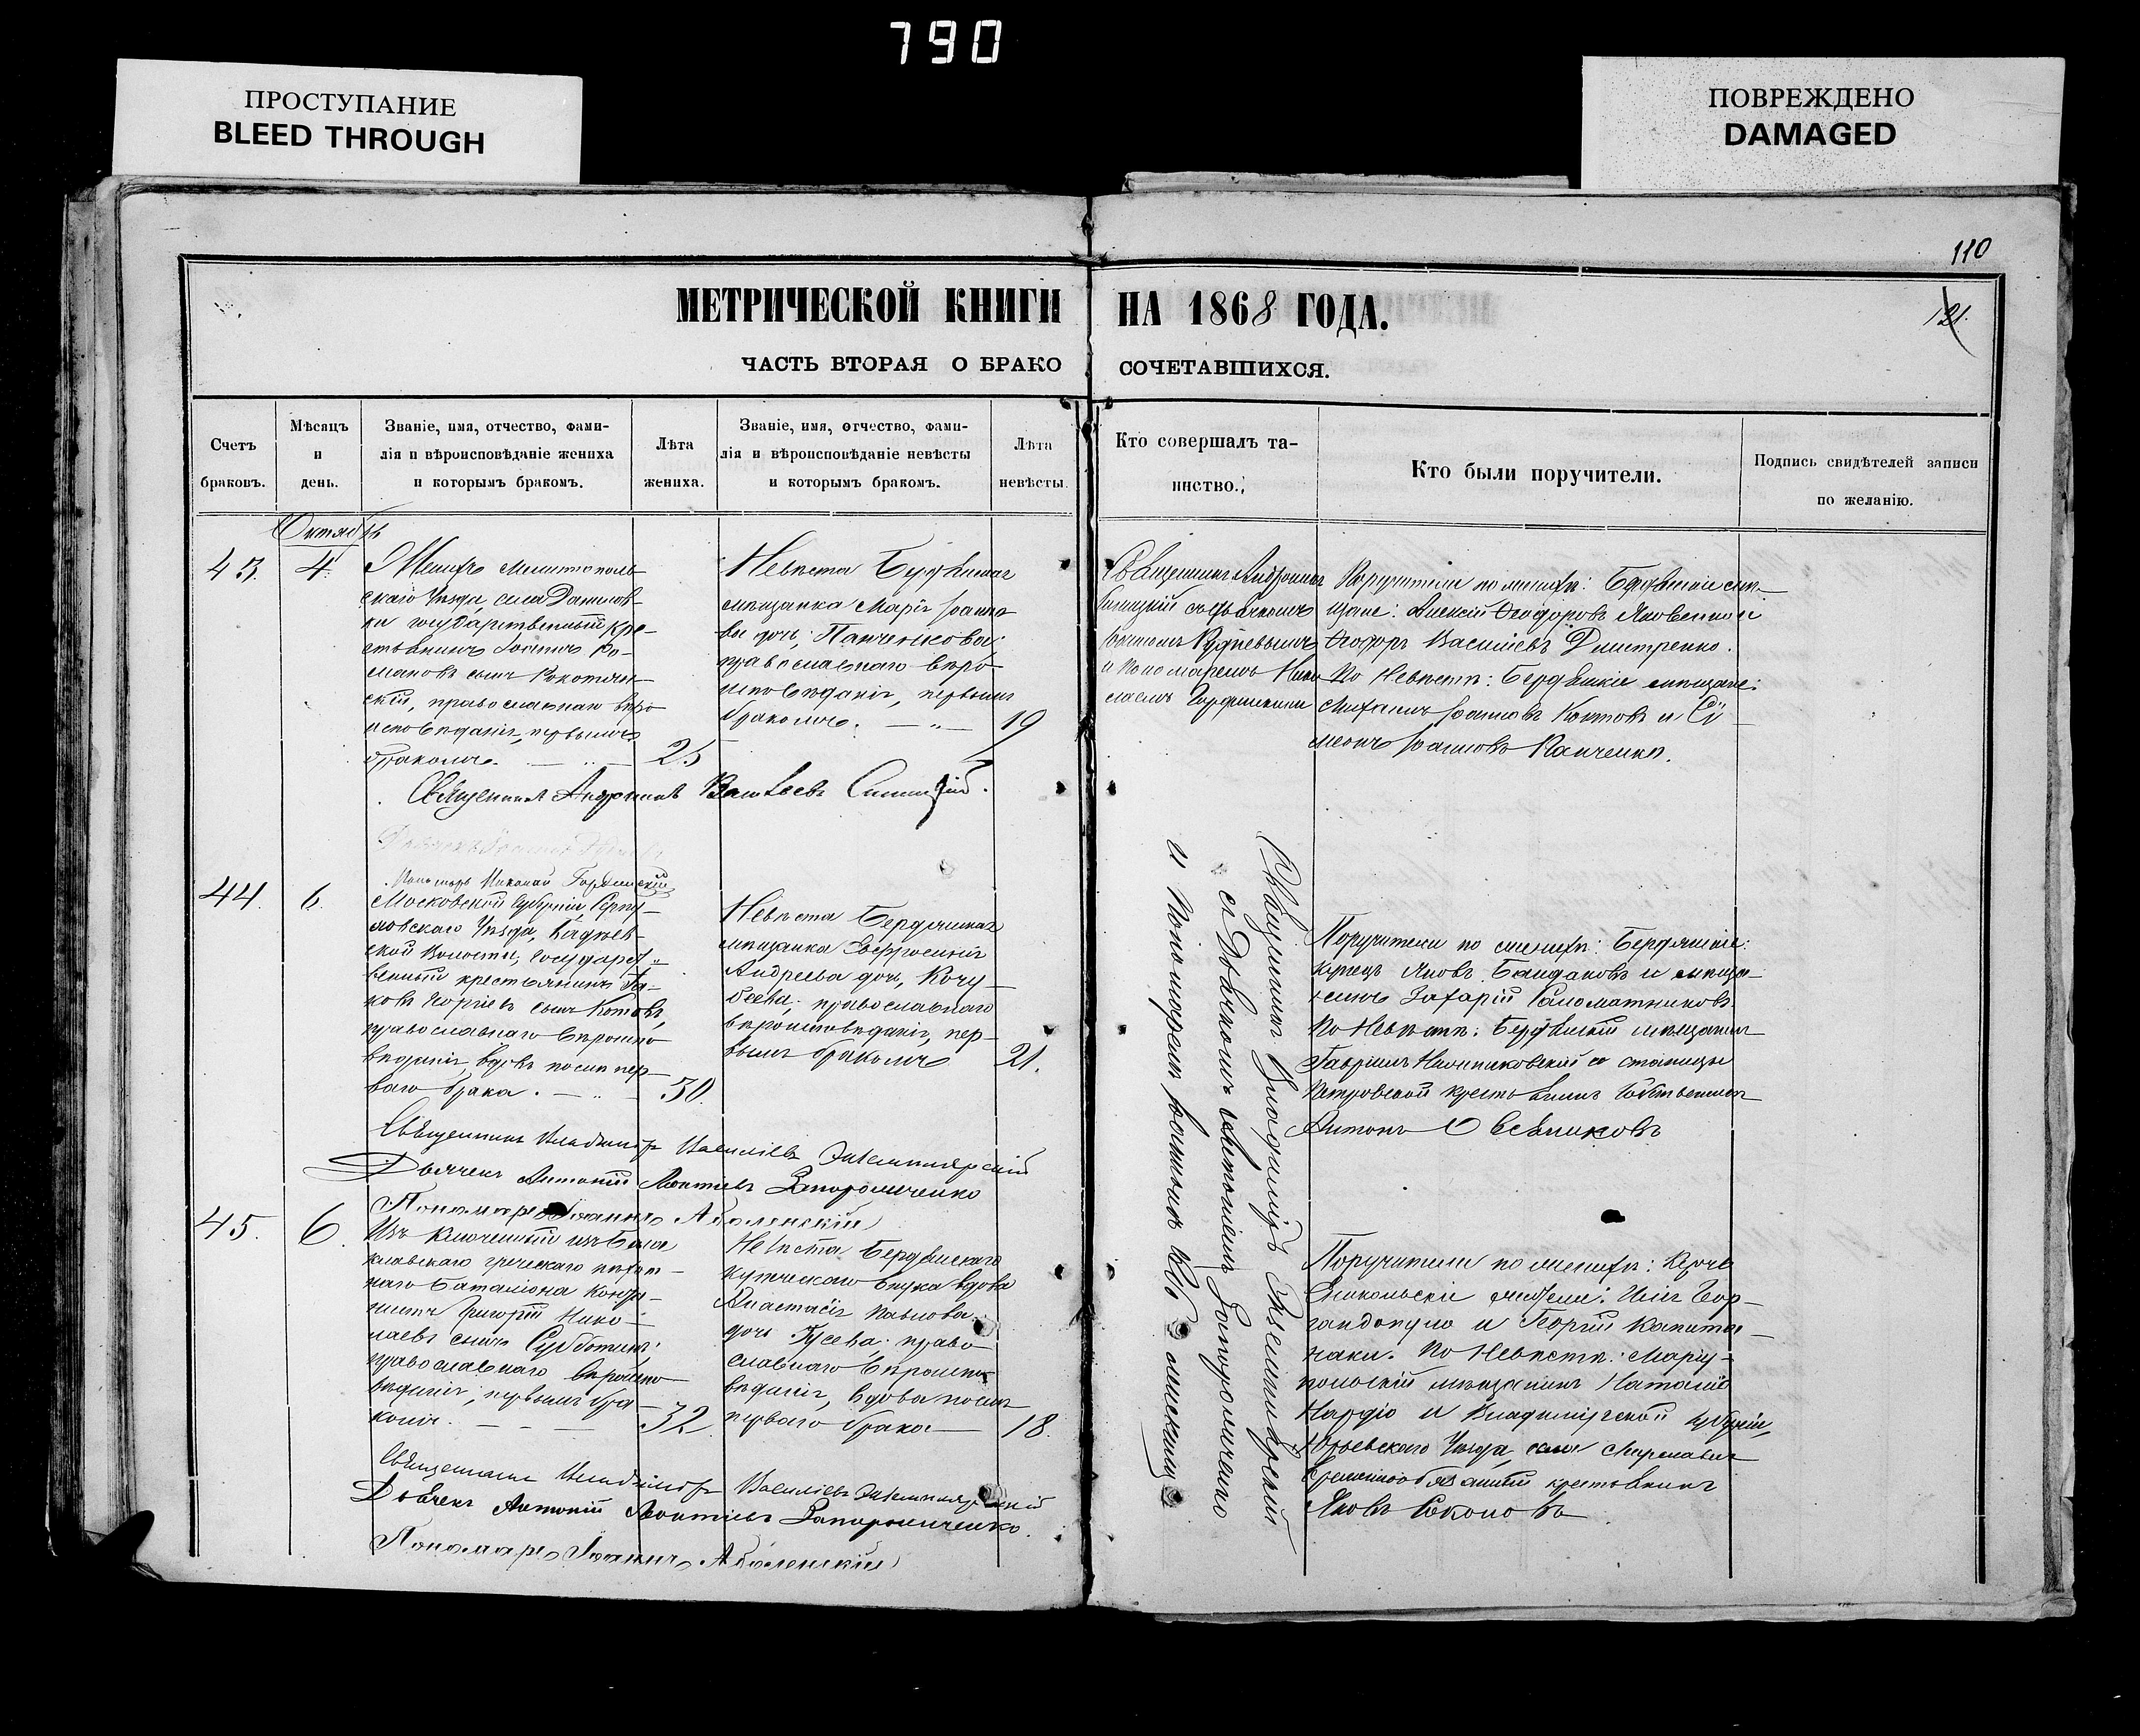 790
ПРОСТУПАНИЕ
BLEED THROUGH
ПОВРЕЖДЕНО
DAMAGED
110
121.
МЕТРИЧЕСКОЙ КНИГИ НА 1868 ГОДА.
ЧАСТЬ ВТОРАЯ О БРАКО СОЧЕТАВШИХСЯ.
Счетъ
браковъ.
Мѣсяцъ
и
день.
Званіе, имя, отчество, фами-
лія и вѣроисповѣданіе жениха
и которымъ бракомъ.
Лѣта
жениха.
Званіе, имя, отчество, фами-
лія и вѣроисповѣданіе невѣсты
и которымъ бракомъ.
Лѣта
невѣсты.
Кто совершалъ та-
инство.
Кто были поручители.
Подпись свидѣтелей записи
по желанію.
Октябрь
43.
4.
Женихъ Мелитополь-
скаго Уѣзда, села Данилов-
ки государственный кре-
стьянинъ Іоаннъ Ро-
мановъ сынъ
скій, православнаго вѣро
исповѣданія, первымъ
бракомъ.
25
Невѣста Бердянская
мѣщанка Марія Іоанно
ва дочь, Панченкова;
православнаго вѣро
исповѣданія, первымъ
бракомъ.
19
Священникъ Андроникъ
Синицкій съ дьячкомъ
Іоанномъ
и пономаремъ Нико
лаемъ Гординскимъ
Поручители по женихѣ: Бердянскіе мѣ-
щане: Алексѣй Ѳеодоровъ Яковенко и
Ѳеодоръ Василіевъ Дмитренко.
По Невѣстѣ: Бердянскіе мѣщане:
Михаилъ Іоанновъ Коптовъ и Сі-
меонъ Іоанновъ Панченко.
Священникъ Андроникъ Синицкій.
Пономарь Николай Гординскій
44.
6.
Московской Губерніи, Серпу-
ховскаго Уѣзда,
ской Волости, государст-
венный крестьянинъ Іа-
ковъ Георгіевъ сынъ Котовъ,
православнаго вѣроиспо
вѣданія, вдовъ послѣ пер-
ваго брака.
30.
Невѣста Бердянская
мѣщанка Евфросинія
Андреева дочь, Кочу-
беева; православнаго
вѣроисповѣданія, пер-
вымъ бракомъ
21.
Поручители по женихѣ: Бердянскіе:
купецъ Яковъ и мѣща-
нинъ Захарій Саломатниковъ.
По Невѣстѣ: Бердянскій мѣщанинъ
Гавріилъ и станицы
Петровской крестьянинъ собственникъ
Антонъ Овсянниковъ
Священникъ Владиміръ Василіевъ Экземплярскій
Дьячекъ Антоній Леонтіевъ Запорожченко
Пономарь Іоаннъ Аболенскій
45.
6.
Изъ ключенный изъ Бала
клавскаго греческаго пѣхот-
наго Баталіона Кондра-
Григорій Нико-
лаевъ сынъ Субботинъ;
православнаго вѣроиспо
вѣданія, первымъ бра-
комъ.
32.
Невѣста Бердянскаго
купеческаго внука вдова
Анастасія Павлова
дочь Гусева; право
славнаго вѣроиспо
вѣданія, вдова послѣ
перваго брака
18.
Поручители по женихѣ: Керчь
Еникольскіе жители: Илія
и Георгій Капита-
наки. По Невѣстѣ: Маріу-
польскій мѣщанинъ
и Владимірской губерніи,
Юрьевскаго Уѣзда, села
временнообязанный крестьянинъ
Яковъ Соколовъ
Священникъ Владиміръ Василіевъ Экземплярскій
Дьячекъ Антоній Леонтіевъ Запорожченко.
Пономарь Іоаннъ Аболенскій
Священникъ Владиміръ Экземплярскій
съ Дьячкомъ Антоніемъ Запорожченко
и Пономаремъ Іоанномъ Аболенскимъ